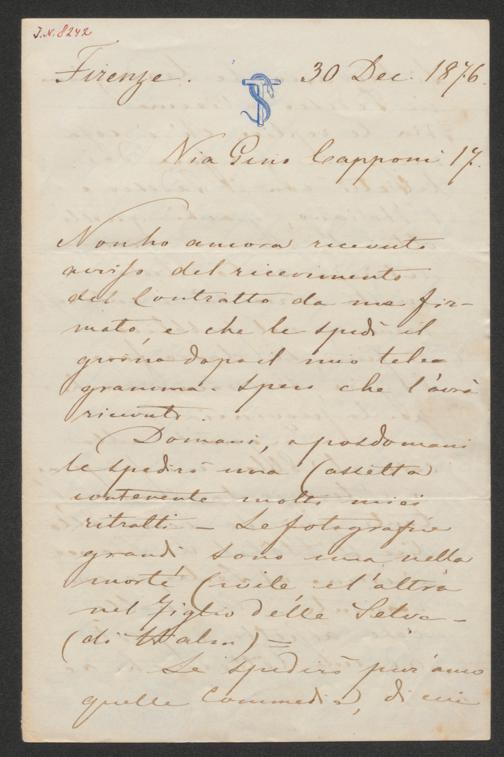 J.N. 8242
Firenze. 30 Dec. 1876.
Via Gino Capponi 17.
Non ho ancora ricevuto
avviso del ricevimento
del Contratto da me fir-
mato, e che le spedì il
giorno dopo il mio tele
gramma. Spero che l'avrà
ricevuto.
Domani, o posdomani
le spedirò una Cassetta
contenente molti miei
ritratti – Le fotografie
grandi sono una nella
morte Civile e l'altra
nel Figlio delle Selve –
(di Halm) =
Le spedirò pur anco
quelle Commedie, di cui